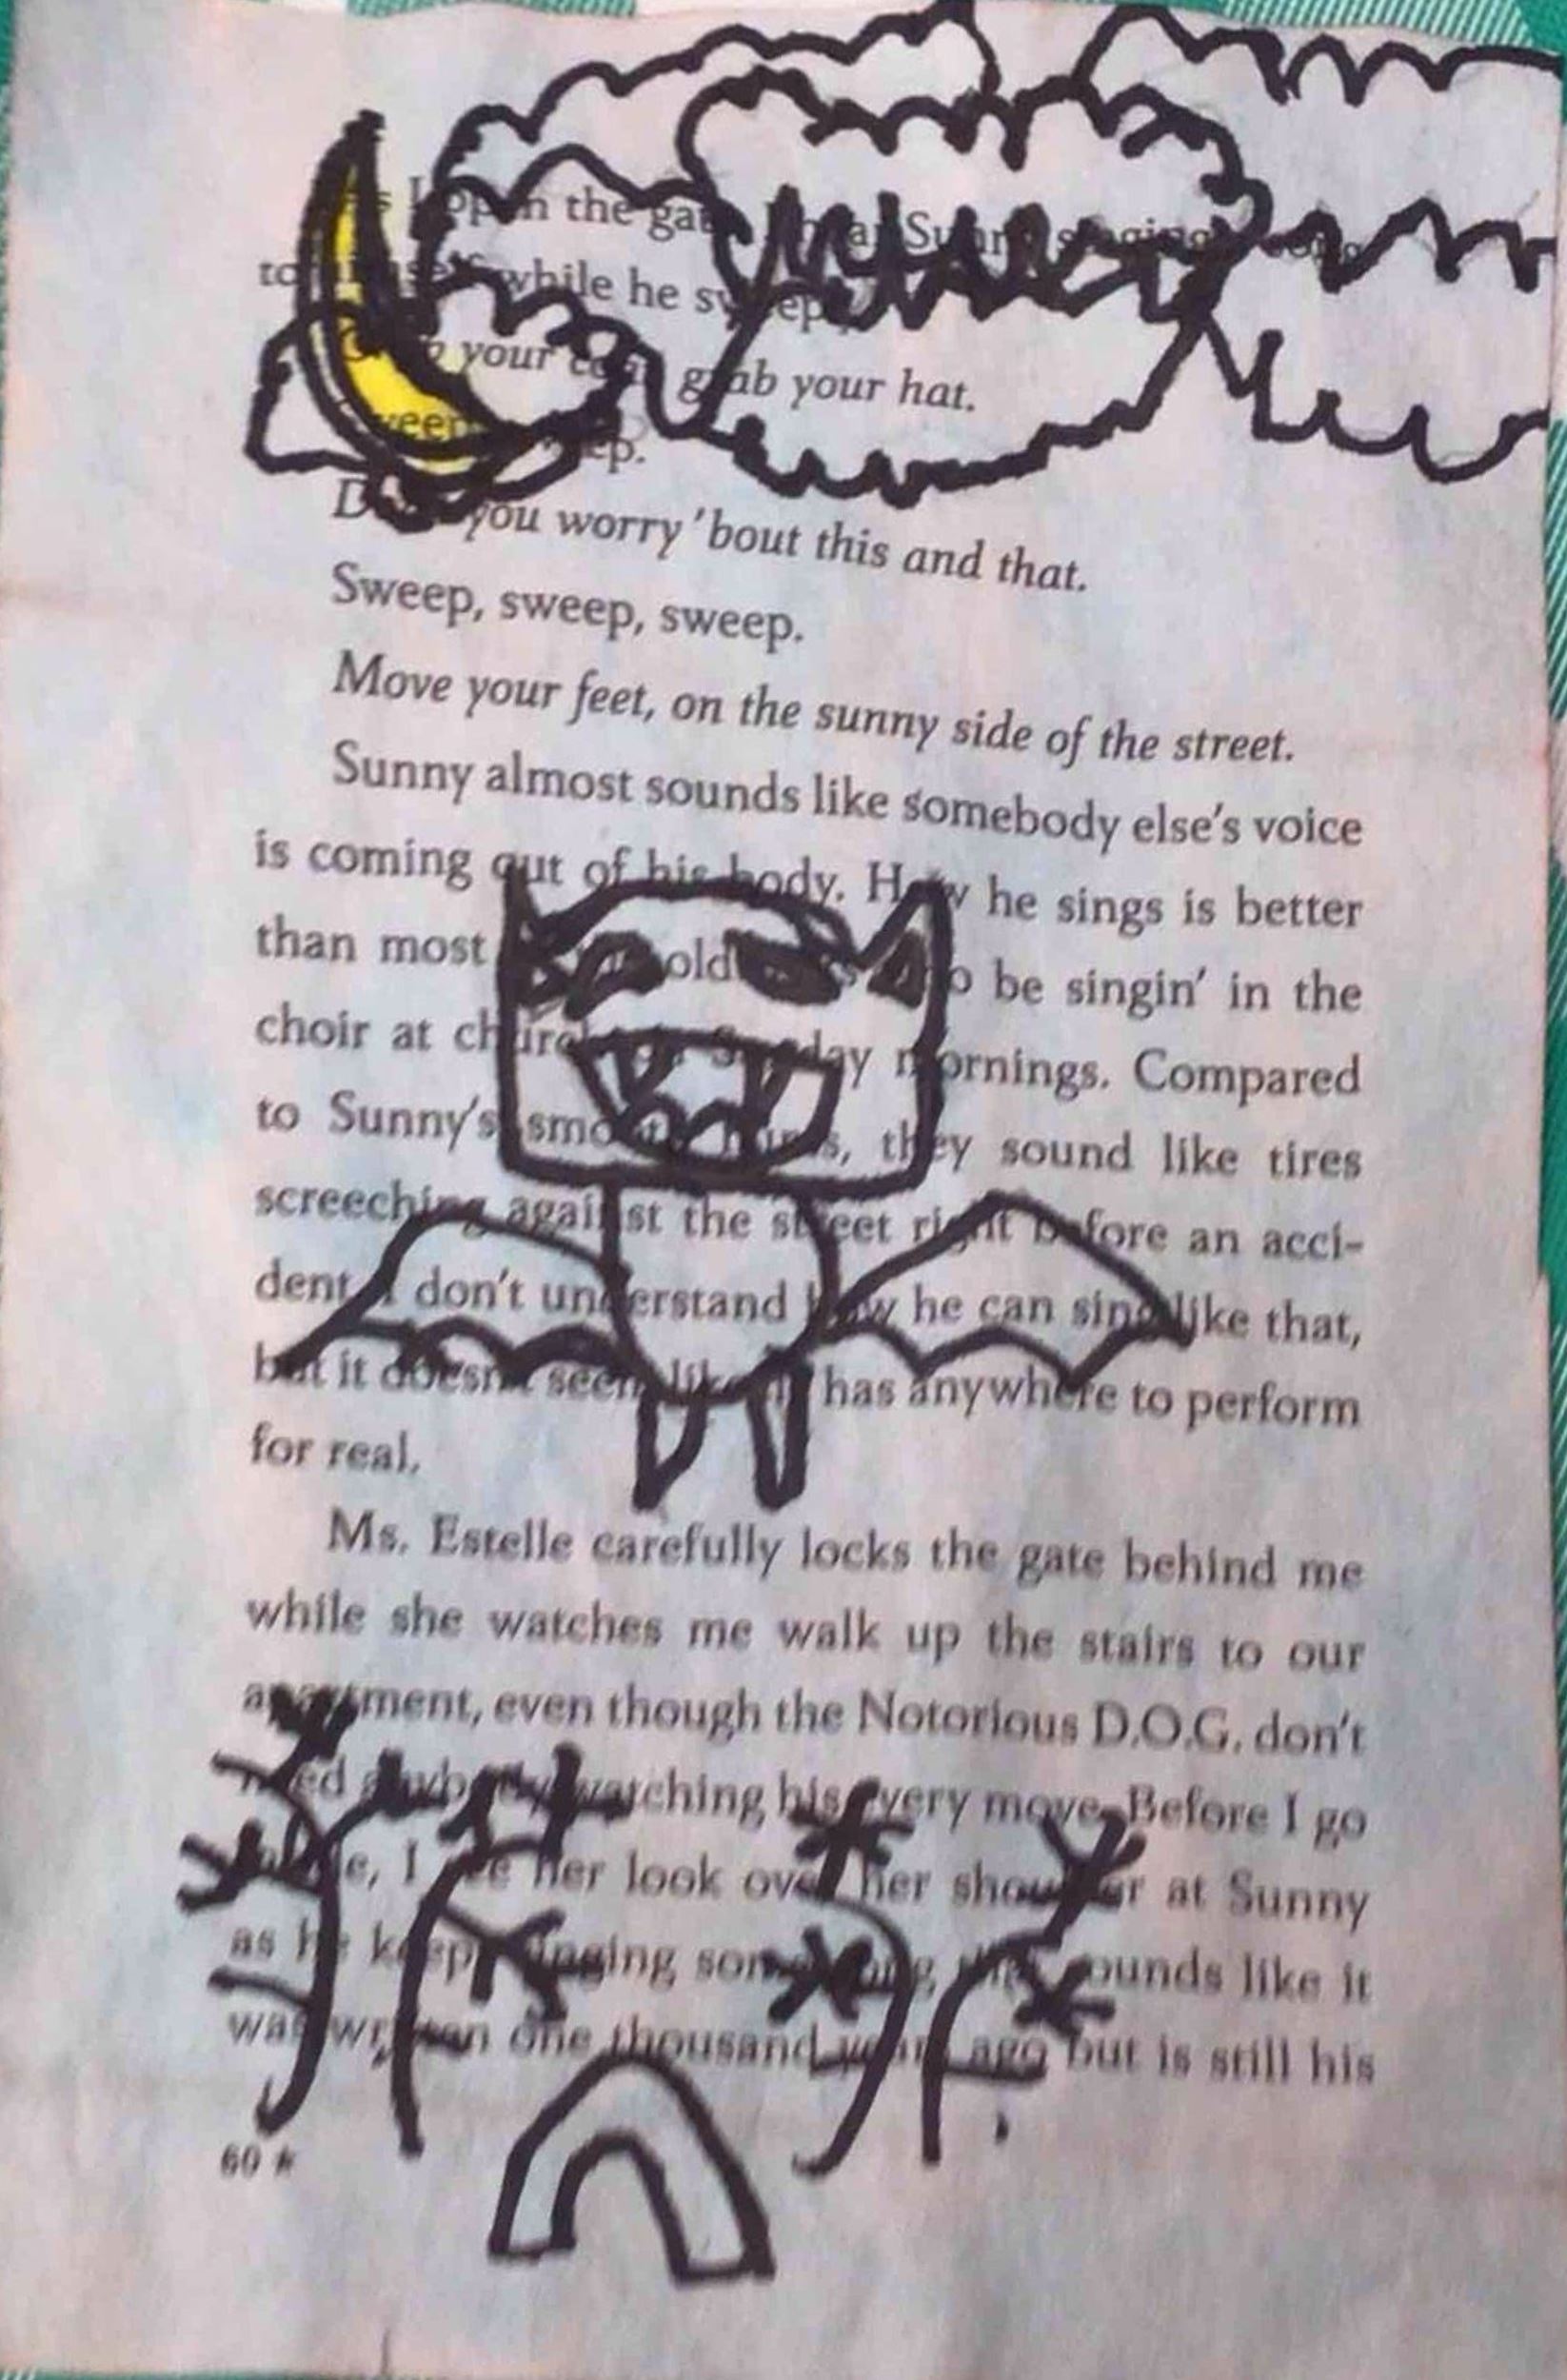 the
while he
your grab your hat.
you worry 'bout this and that.
Sweep, sweep, sweep.
Move your feet, on the sunny side of the street.
Sunny almost sounds like somebody else's voice
is coming out of his body. How he sings is better
than most old be singin' in the
choir at church mornings. Compared
to Sunny's smooth they sound like tires
screeching against the street right before an acci-
dent. I don't understand how he can sing like that,
but it doesn't seem like has anywhere to perform
for real.
Ms. Estelle carefully locks the gate behind me
while she watches me walk up the stairs to our
apartment, even though the Notorious D.O.G. don't
need anybody watching his every move. Before I go
I see her look over her shoulder at Sunny
as he keeps singing sounds like it
was written one thousand years ago but is still his
60 *